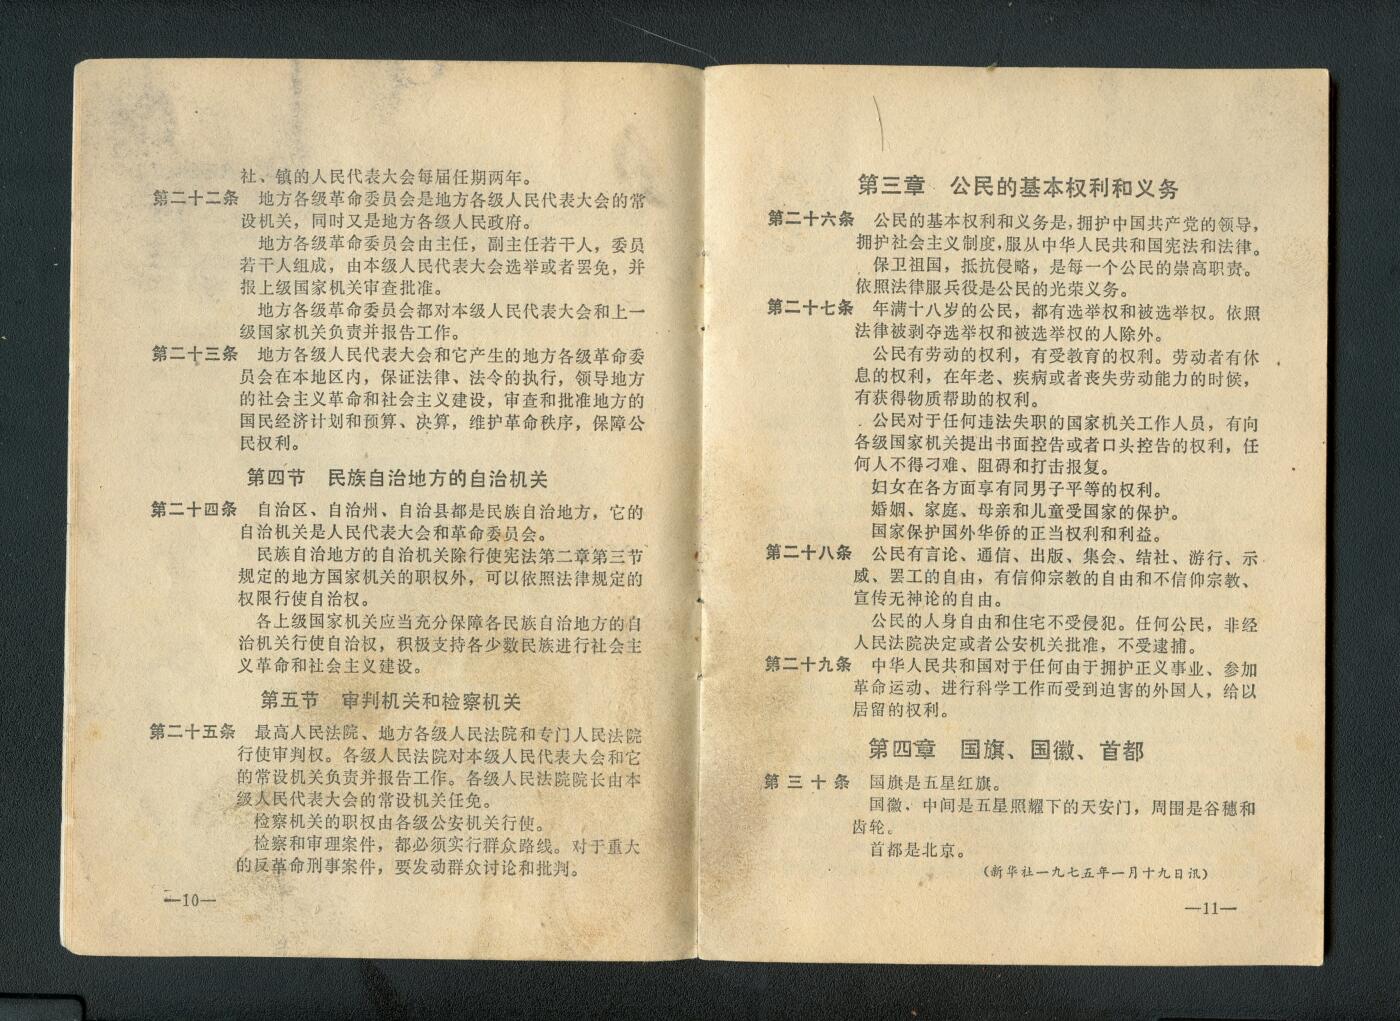 社、镇的人民代表大会每届任期两年。
第二十二条 地方各级革命委员会是地方各级人民代表大会的常
设机关，同时又是地方各级人民政府。
地方各级革命委员会由主任，副主任若干人，委员
若干人组成，由本级人民代表大会选举或者罢免，并
报上级国家机关审查批准。
地方各级革命委员会都对本级人民代表大会和上一
级国家机关负责并报告工作。
第二十三条 地方各级人民代表大会和它产生的地方各级革命委
员会在本地区内，保证法律、法令的执行，领导地方
的社会主义革命和社会主义建设，审查和批准地方的
国民经济计划和预算、决算，维护革命秩序，保障公
民权利。
第四节 民族自治地方的自治机关
第二十四条 自治区、自治州、自治县都是民族自治地方，它的
自治机关是人民代表大会和革命委员会。
民族自治地方的自治机关除行使宪法第二章第三节
规定的地方国家机关的职权外，可以依照法律规定的
权限行使自治权。
各上级国家机关应当充分保障各民族自治地方的自
治机关行使自治权，积极支持各少数民族进行社会主
义革命和社会主义建设。
第五节 审判机关和检察机关
第二十五条 最高人民法院、地方各级人民法院和专门人民法院
行使审判权。各级人民法院对本级人民代表大会和它
的常设机关负责并报告工作。各级人民法院院长由本
级人民代表大会的常设机关任免。
检察机关的职权由各级公安机关行使。
检察和审理案件，都必须实行群众路线。对于重大
的反革命刑事案件，要发动群众讨论和批判。
—10—
第三章 公民的基本权利和义务
第二十六条 公民的基本权利和义务是，拥护中国共产党的领导，
拥护社会主义制度，服从中华人民共和国宪法和法律。
保卫祖国，抵抗侵略，是每一个公民的崇高职责。
依照法律服兵役是公民的光荣义务。
第二十七条 年满十八岁的公民，都有选举权和被选举权。依照
法律被剥夺选举权和被选举权的人除外。
公民有劳动的权利，有受教育的权利。劳动者有休
息的权利，在年老、疾病或者丧失劳动能力的时候，
有获得物质帮助的权利。
公民对于任何违法失职的国家机关工作人员，有向
各级国家机关提出书面控告或者口头控告的权利，任
何人不得刁难、阻碍和打击报复。
妇女在各方面享有同男子平等的权利。
婚姻、家庭、母亲和儿童受国家的保护。
国家保护国外华侨的正当权利和利益。
第二十八条 公民有言论、通信、出版、集会、结社、游行、示
威、罢工的自由，有信仰宗教的自由和不信仰宗教、
宣传无神论的自由。
公民的人身自由和住宅不受侵犯。任何公民，非经
人民法院决定或者公安机关批准，不受逮捕。
第二十九条 中华人民共和国对于任何由于拥护正义事业、参加
革命运动、进行科学工作而受到迫害的外国人，给以
居留的权利。
第四章 国旗、国徽、首都
第三十条 国旗是五星红旗。
国徽、中间是五星照耀下的天安门，周围是谷穗和
齿轮。
首都是北京。
（新华社一九七五年一月十九日讯）
—11—